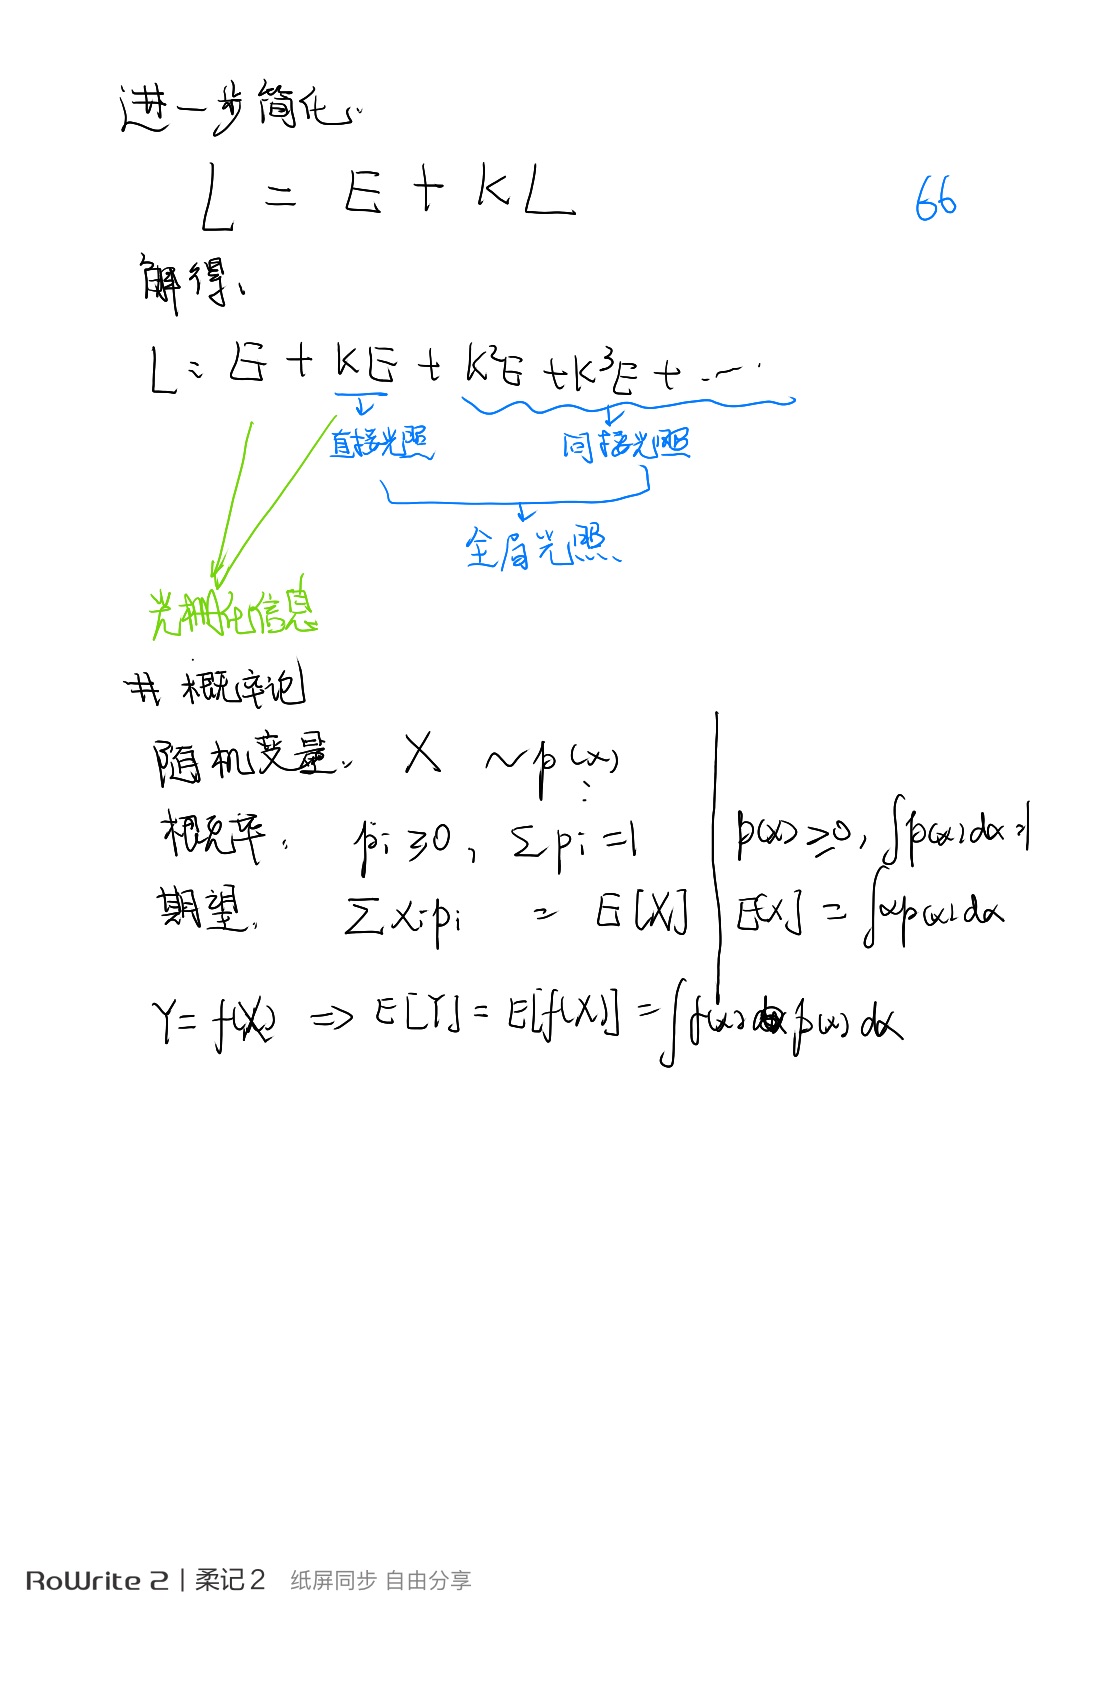 进一步简化:
L = E + KL
66
解得:
L = E + KE + K²E + K³E + ⋯
直接光照 间接光照
全局光照
光栅化信息
# 概率论
随机变量: X ~p(x)
概率: pi ≥0, Σpi=1 p(x)≥0, ∫p(x)dx=1
期望: Σxipi = E[X] E[X] = ∫xp(x)dx
Y=f(X) ⇒ E[Y] = E[f(X)] = ∫f(x)p(x)dx
RoWrite 2 | 柔记 2 纸屏同步 自由分享